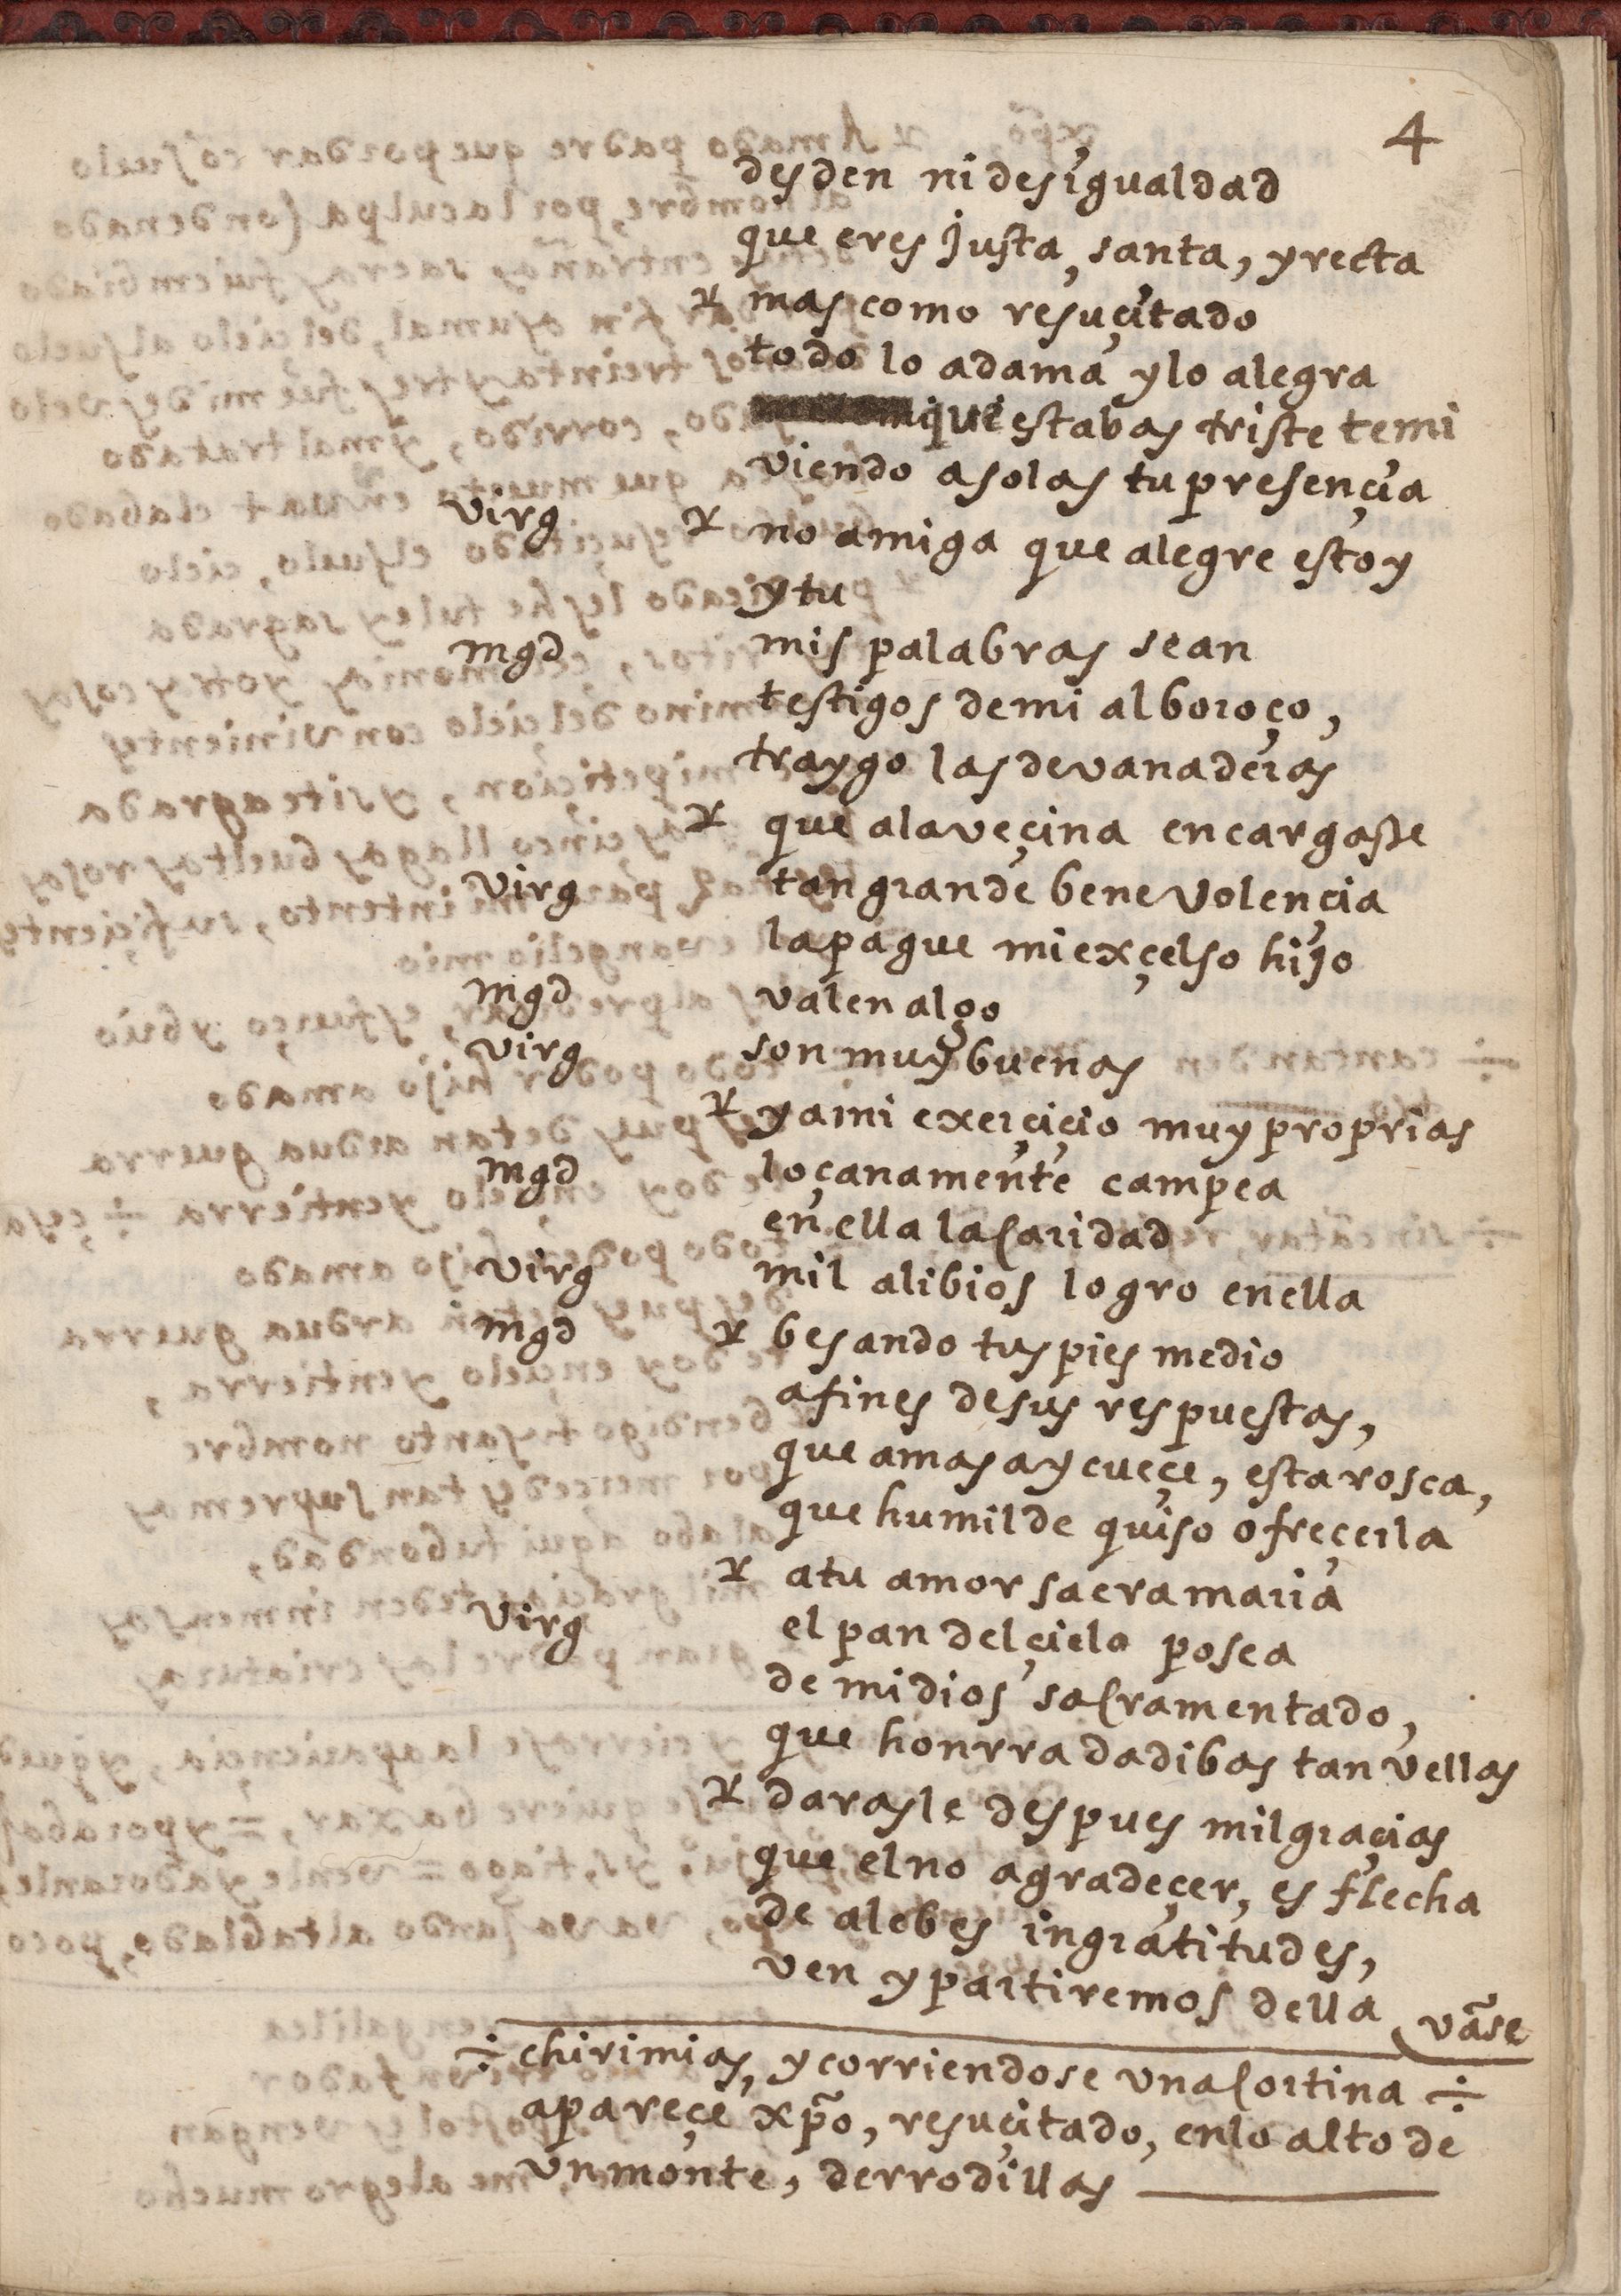 4
desden ni desigualdad
que eres justa, santa, y recta
mas como resuçitado
todo lo adama y lo alegra
que estabas triste temi
viendo a solas tu presençia
virg no amiga que alegre estoy
y tu
mgd mis palabras sean
testigos de mi alboroço,
traygo las devanaderas
que a la veçina encargaste
virg tan grande benevolençia
la pague mi exçelso hijo
mgd valen algo
virg son muy buenas
y a mi exerçiçio muy proprias
mgd loçanamente campea
en ella la Caridad
virg mil alibios logro en ella
mgd besando tus pies medio
a fines de sus respuestas,
que amasa y cueçe, esta rosca,
que humilde quiso ofreçerla
a tu amor sacra maria
virg el pan del çielo posea
de mi dios saCramentado,
que honrra dadibas tan vellas
darasle despues mil graçias
que el no agradeçer, es flecha
de alebes ingratitudes,
ven y partiremos della vãse
÷ chirimias, y corriendose una Cortina ÷
apareçe xp̃o, resuçitado, en lo alto de
un monte, de rrodillas